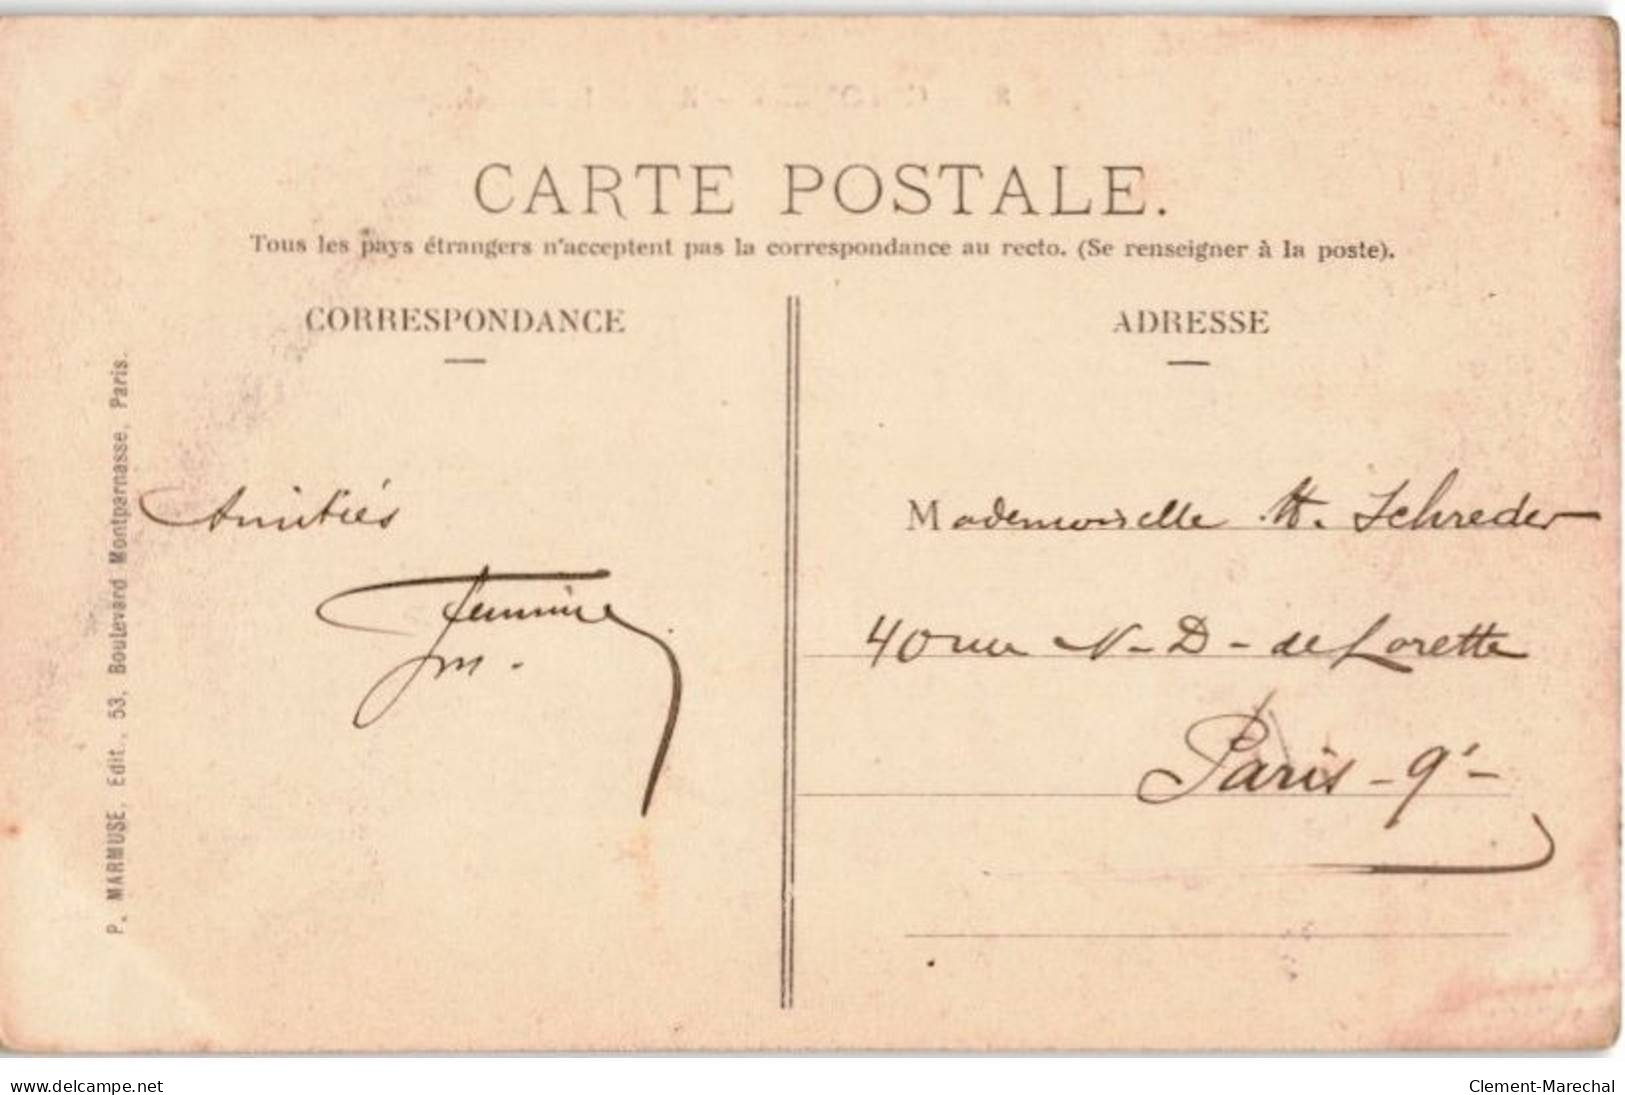 CARTE POSTALE.
Tous les pays étrangers n'acceptent pas la correspondance au recto. (Se renseigner à la poste).
CORRESPONDANCE
Amitiés
ADRESSE
Mademoiselle H. Schreder
40 rue N-D-de Lorette
Paris-9e-
P. MARMUSE, Edit., 53, Boulevard Montparnasse, Paris.
www.delcampe.net
Clement-Marechal